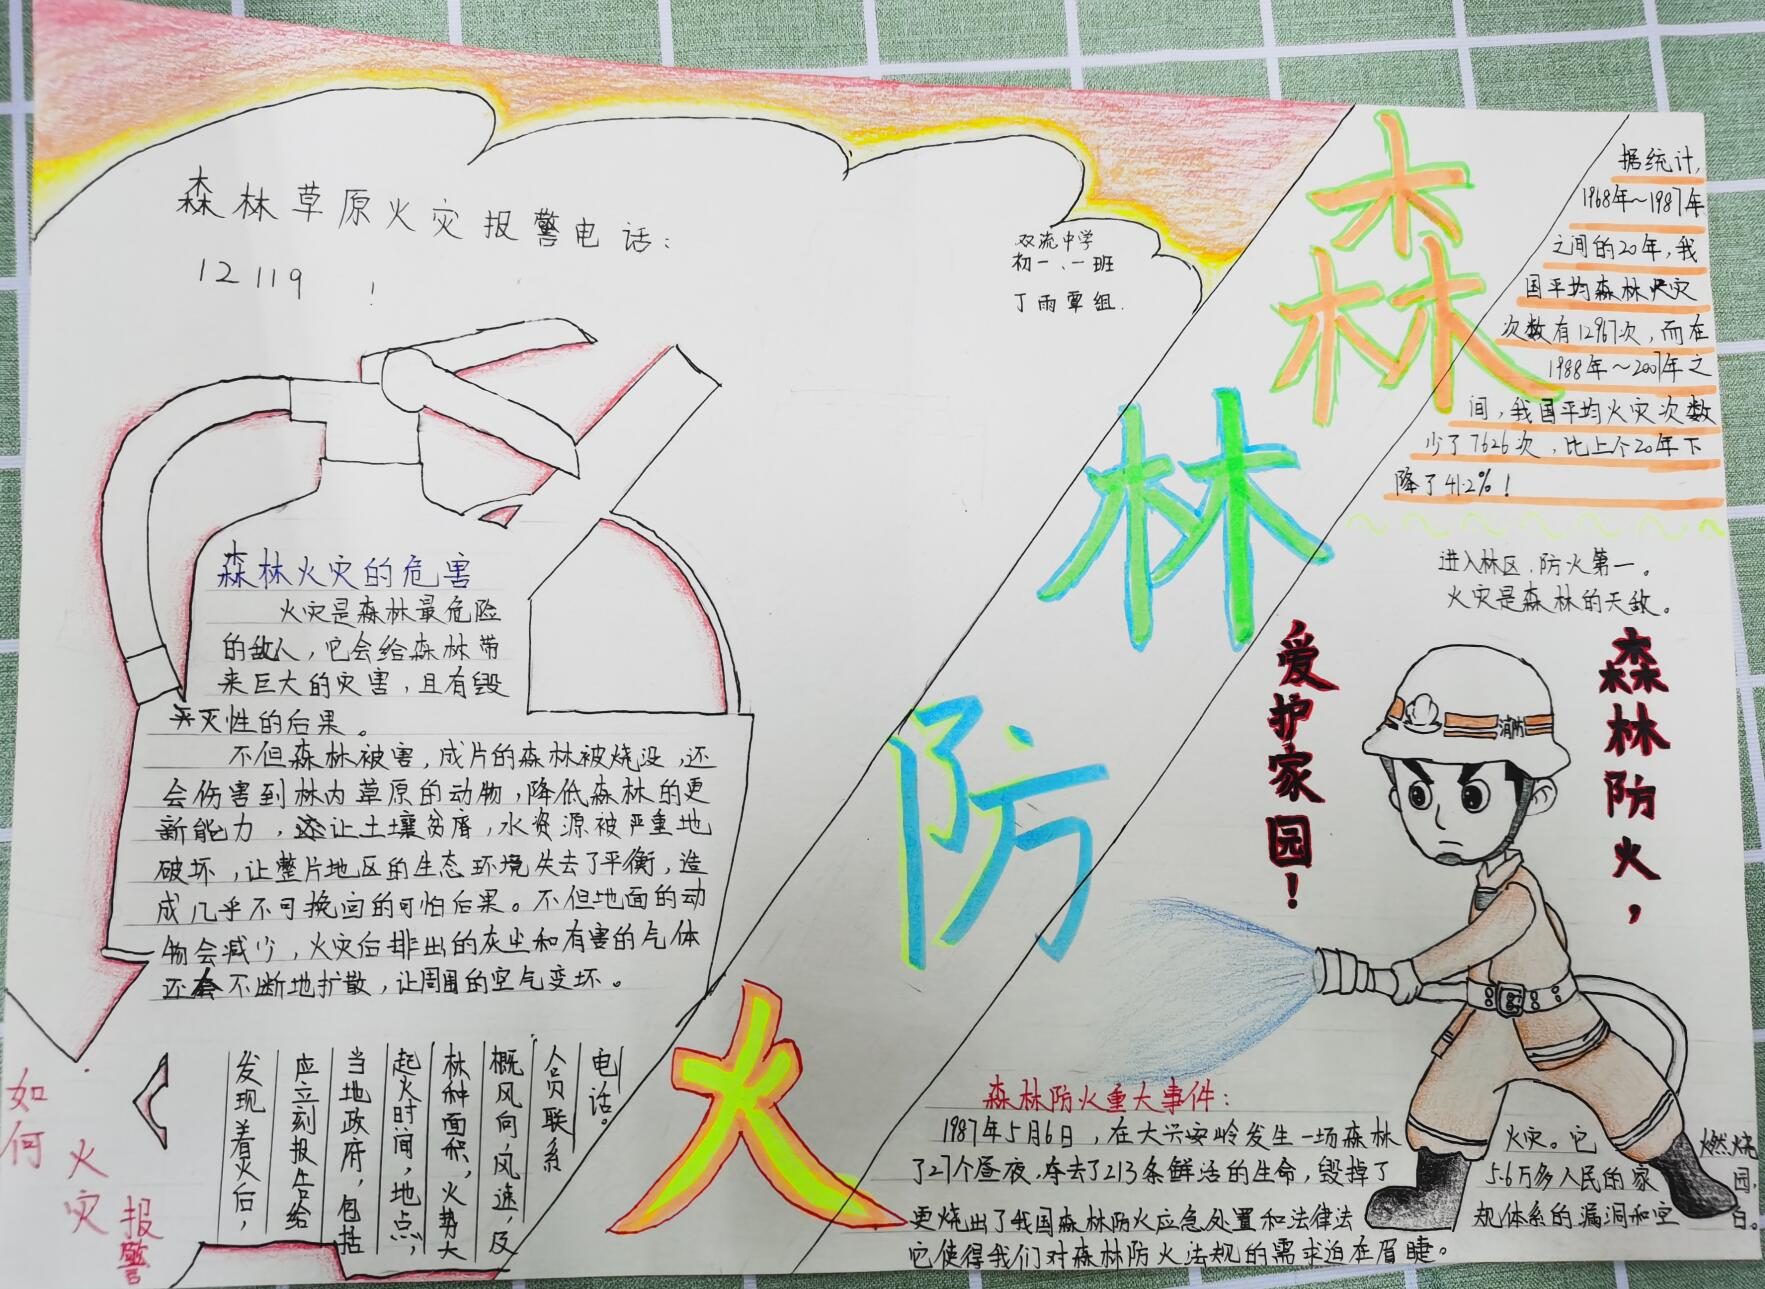 森林草原火灾报警电话：
12119！
双流中学
初一、一班
丁雨覃组.
森林火灾的危害
火灾是森林最危险
的敌人，它会给森林带
来巨大的灾害，且有毁
灭性的后果。
不但森林被害，成片的森林被烧没，还
会伤害到林内草原的动物，降低森林的更
新能力，还让土壤贫瘠，水资源被严重地
破坏，让整片地区的生态环境失去了平衡，造
成几乎不可换回的可怕后果。不但地面的动
物会减少，火灾后排出的灰尘和有害的气体
还会不断地扩散，让周围的空气变坏。
如何
火灾
报警
发现着火后，
应立刻报告给
当地政府，包括
起火时间，地点，
林种面积，火势大
概风向，风速，及
人员联系
电话。
森
林
防
火
据统计，
1968年～1987年
之间的20年，我
国平均森林火灾
次数有12967次，而在
1988年～2007年之
间，我国平均火灾次数
少了7626次，比上个20年下
降了41.2%！
进入林区，防火第一。
火灾是森林的天敌。
森林防火，
爱护家园！
消防
森林防火重大事件：
1987年5月6日，在大兴安岭发生一场森林火灾。它燃烧
了27个昼夜，夺去了213条鲜活的生命，毁掉了5.6万多人民的家园，
更烧出了我国森林防火应急处置和法律法规体系的漏洞和空白。
它使得我们对森林防火法规的需求迫在眉睫。